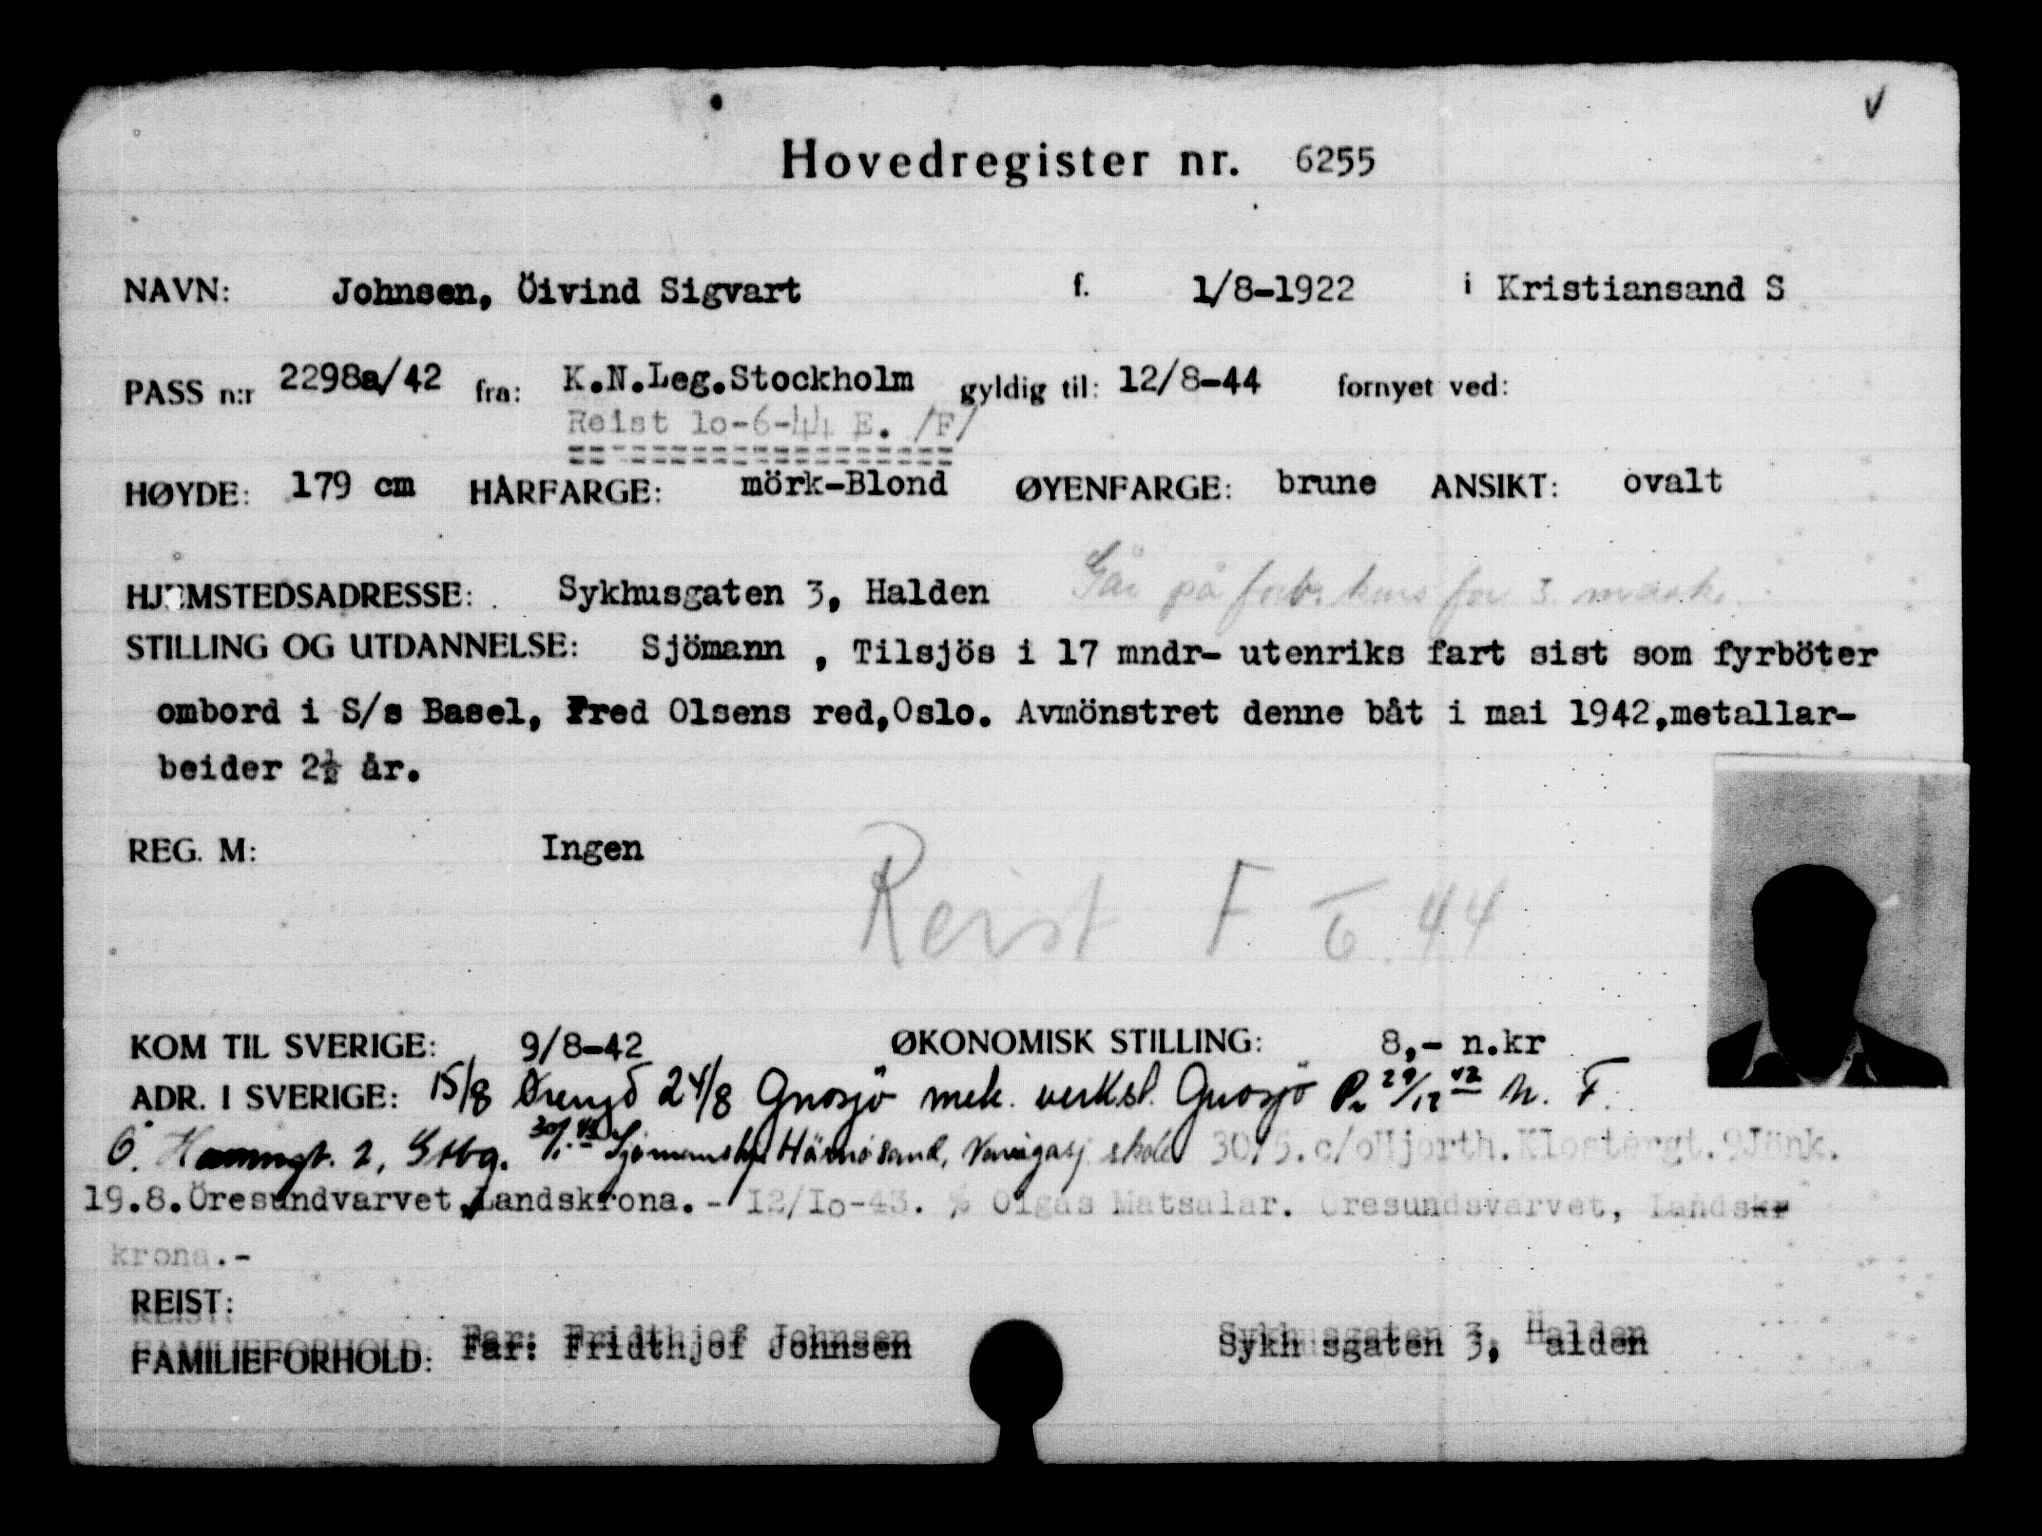 Hovedregister nr. 6255
NAVN: Johnsen, Öivind Sigvart f. 1/8-1922 i Kristiansand S
PASS n:r 2298a/42 fra: K.N.Leg.Stockholm gyldig til: 12/8-44 fornyet ved:
Reist 1o-6-44 E. /F/
HØYDE: 179 cm HÅRFARGE: mörk-Blond ØYENFARGE: brune ANSIKT: ovalt
HJEMSTEDSADRESSE: Sykhusgaten 3, Halden Går på forb. kurs for 3. mask.
STILLING OG UTDANNELSE: Sjömann , Tilsjös i 17 mndr- utenriks fart sist som fyrböter
ombord i S/s Basel, Fred Olsens red,Oslo. Avmönstret denne båt i mai 1942,metallar-
beider 2½ år.
REG. M: Ingen
Reist F 6. 44
KOM TIL SVERIGE: 9/8-42 ØKONOMISK STILLING: 8,- n.kr
ADR. I SVERIGE: 15/8 24/8 Gnosjö mek. verkst. Gnosjö 29/12 42 N. F.
Ö. 2, Gtbg. Härnösand, skole 30/5. c/oHjorth.Klostergt.9Jönk.
19.8.Öresundvarvet,Landskrona.- 12/1o-43. % Olgas Matsalar. Öresundsvarvet, Landskr
krona.-
REIST:
FAMILIEFORHOLD: Far: Fridthjof Johnsen Sykhusgaten 3, Halden